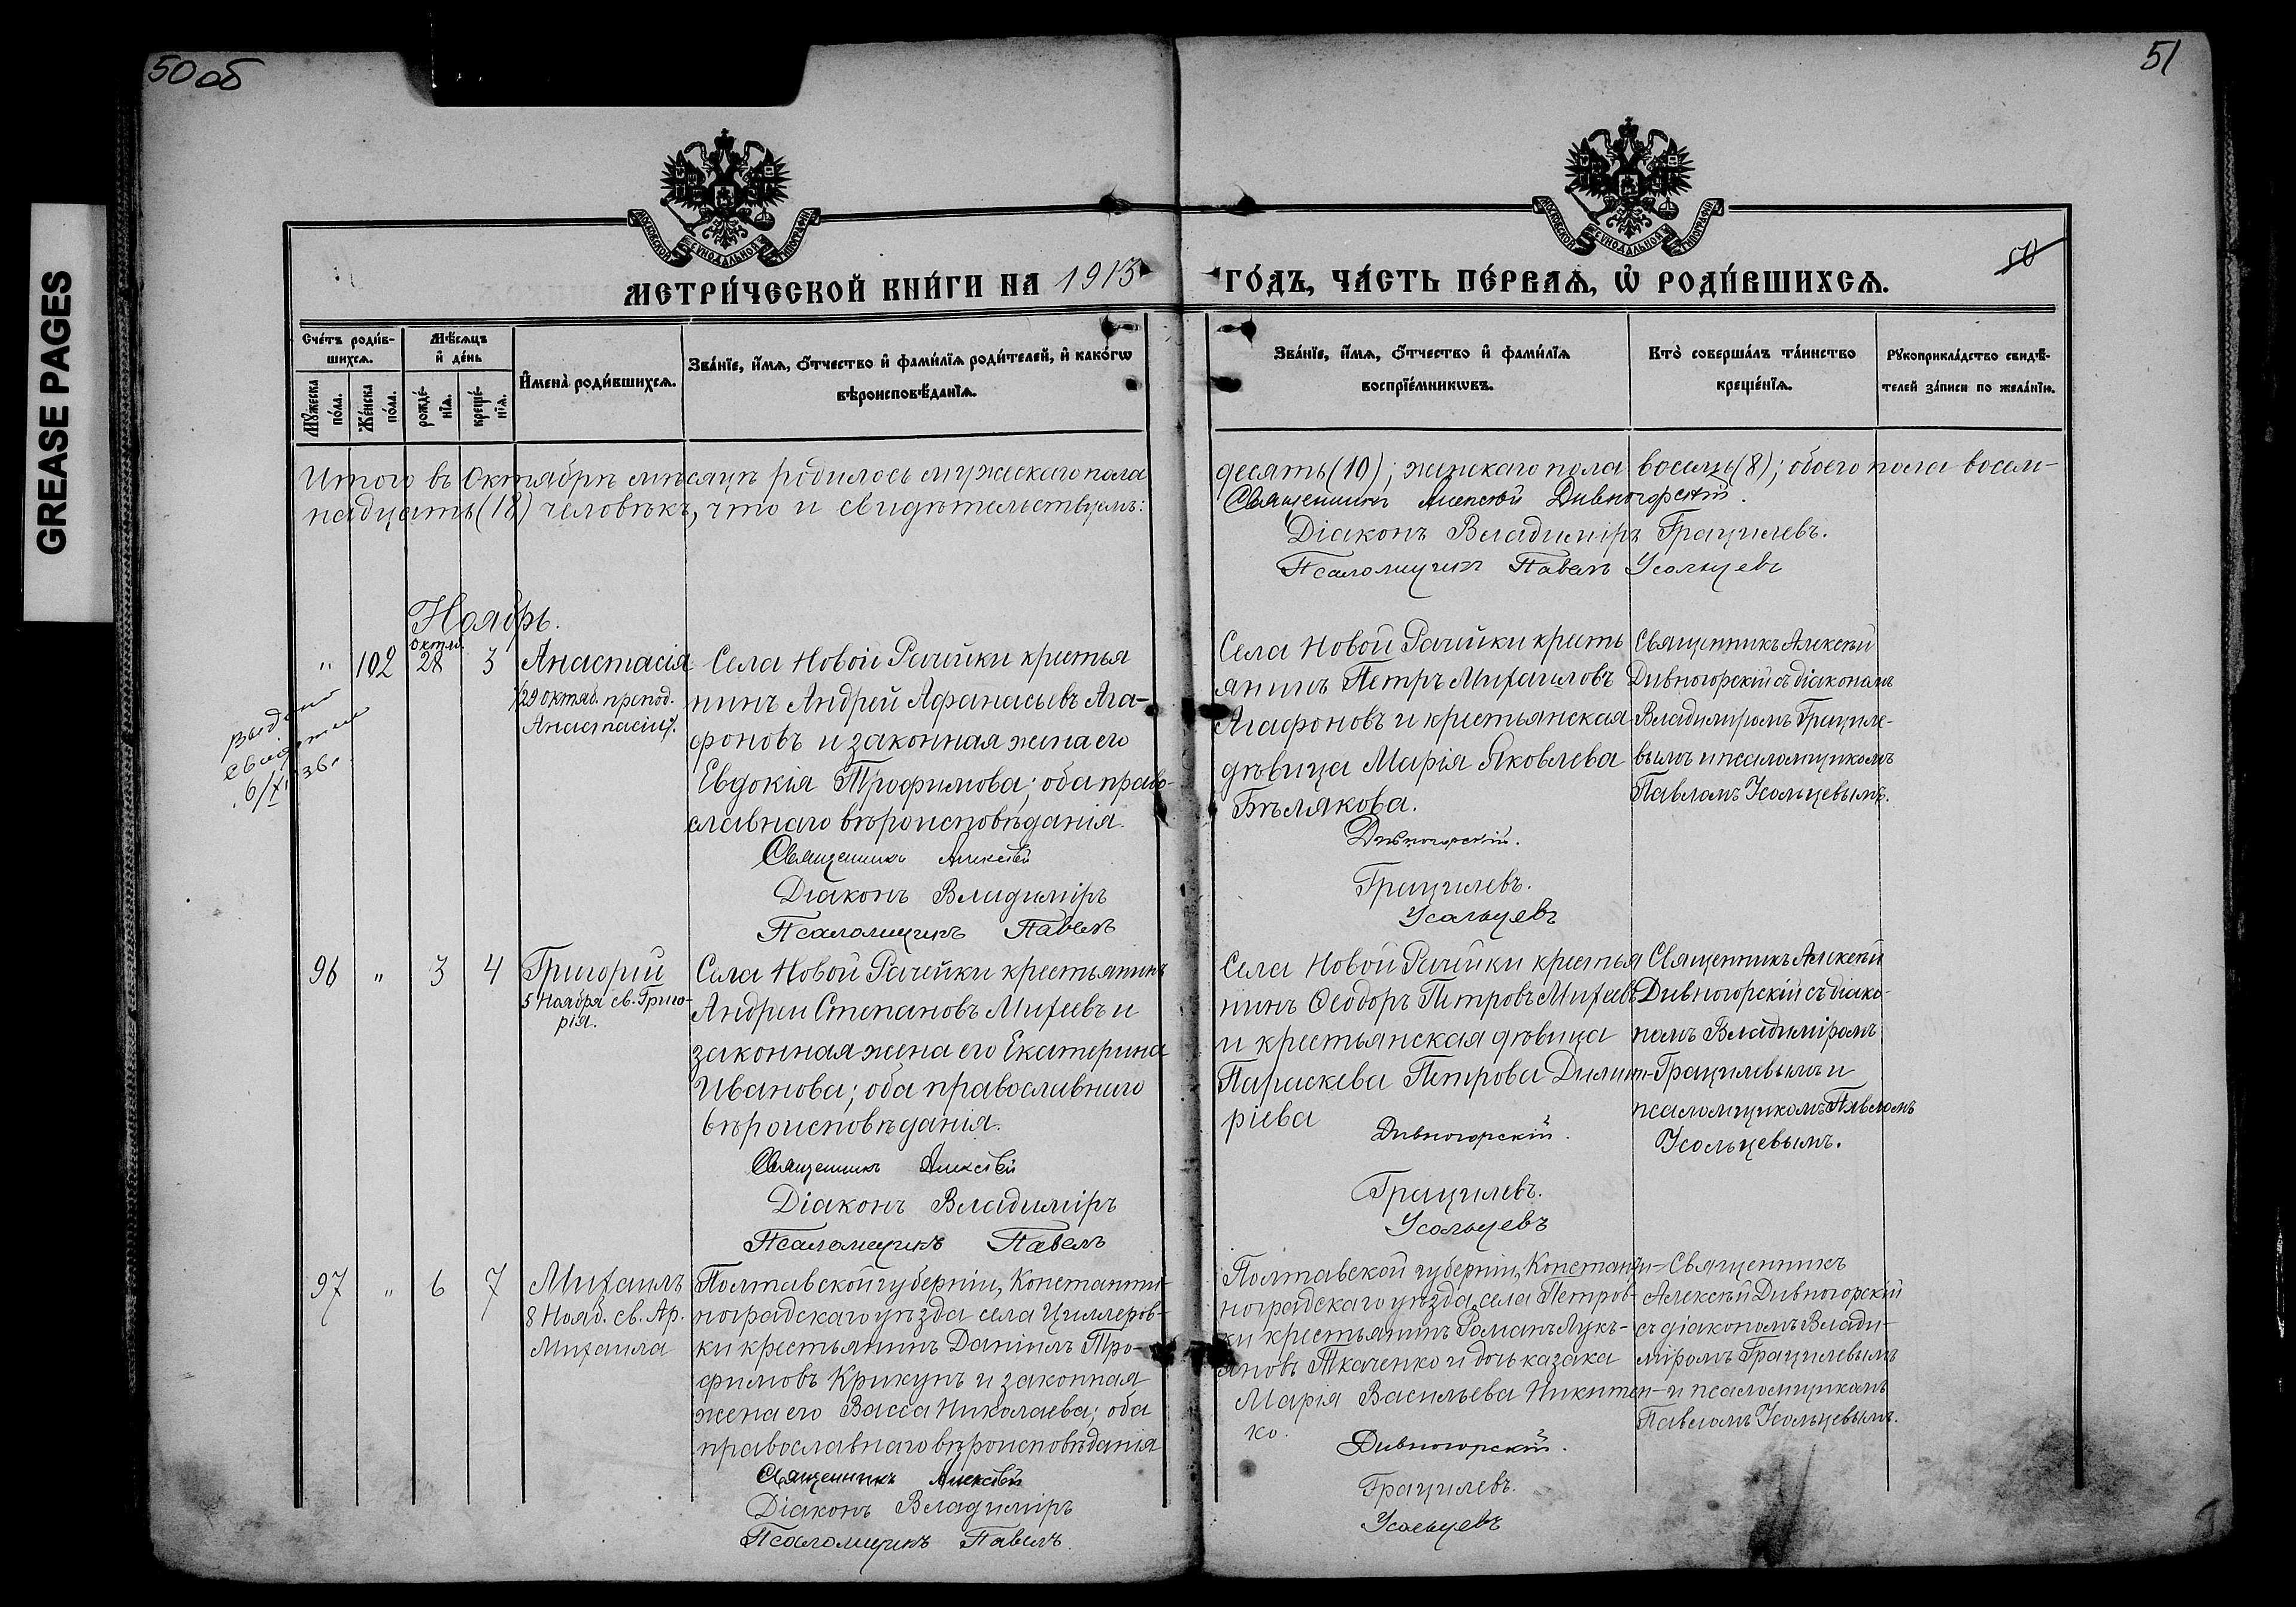 GREASE PAGES
50 об
51
50
МОСКОВСКОЙ СѴНОДАЛЬНОЙ ТИПОГРАФІИ
МОСКОВСКОЙ СѴНОДАЛЬНОЙ ТИПОГРАФІИ
МЕТРИ́ЧЕСКОЙ КНИ́ГИ НА 1913 ГО́ДЪ, ЧА́СТЬ ПЕ́РВАѦ, Ѡ҆ РОДИ́ВШИХСѦ.
Сче́тъ роди́в-
шихсѧ.
Мꙋ́жеска
по́ла.
Же́нска
по́ла.
Мѣ́сѧцъ
и҆ де́нь
рожде́-
нїѧ.
креще́-
нїѧ.
И҆мена̀ роди́вшихсѧ.
Зва́нїе, и҆́мѧ, ѻ҆́тчество и҆ фами́лїѧ роди́телей, и҆ како́гѡ
вѣроисповѣ́данїѧ.
Зва́нїе, и҆́мѧ, ѻ҆́тчество и҆ фами́лїѧ
воспрїе́мникѡвъ.
Кто̀ соверша́лъ та́инство
креще́нїѧ.
Рꙋкоприкла́дство свидѣ́-
телей за́писи по жела́нїю.
Итого въ Октябрѣ мѣсяцѣ родилось мужескаго пола
десять (10); женскаго пола восемь (8); обоего пола восем-
надцать (18) человѣкъ, что и свидѣтельствуемъ:
Священникъ Алексѣй Дивногорскій.
Діаконъ Владиміръ Грацилевъ.
Псаломщикъ Павелъ Усольцевъ
Ноябрь.
"
102
Октяб.
28
3
Анастасія
29 Октяб. препод.
Анастасіи.
выдано
6/ 36 г.
Села Новой Рачейки крестья
нинъ Андрей Афанасьевъ Ага-
фоновъ и законная жена его
Евдокія Трофимова; оба право-
славнаго вѣроисповѣданія.
Священникъ Алексѣй
Діаконъ Владиміръ
Псаломщикъ Павелъ
Села Новой Рачейки кресть
янинъ Петръ Михаиловъ
Агафоновъ и крестьянская
дѣвица Марія Яковлева
Бѣлякова.
Дивногорскій.
Грацилевъ.
Усольцевъ
Священникъ Алексѣй
Дивногорскій съ діакономъ
Владиміромъ Грациле-
вымъ и псаломщикомъ
Павломъ Усольцевымъ.
96
"
3
4
Григорій
5 Ноября св. Григо-
рія.
Села Новой Рачейки крестьянинъ
Андрей Степановъ Михеевъ и
законная жена его Екатерина
Иванова; оба православнаго
вѣроисповѣданія.
Священникъ Алексѣй
Діаконъ Владиміръ
Псаломщикъ Павелъ
Села Новой Рачейки крестья
нинъ Ѳеодоръ Петровъ Михеевъ
и крестьянская дѣвица
Параскева Петрова Димит-
ріева
Дивногорскій.
Грацилевъ.
Усольцевъ
Священникъ Алексѣй
Дивногорскій съ діако-
номъ Владиміромъ
Грацилевымъ и
псаломщикомъ Павломъ
Усольцевымъ.
97
"
6
7
Михаилъ
8 Нояб. св. Ар.
Михаила
Полтавской губерніи, Константи-
ноградскаго уѣзда села Циглеров-
ки крестьянинъ Даніилъ Тро-
фимовъ Крикунъ и законная
жена его Васса Николаева; оба
православнаго вѣроисповѣданія
Священникъ Алексѣй
Діаконъ Владиміръ
Псаломщикъ Павелъ.
Полтавской губерніи, Константи-
ноградскаго уѣзда села Петров-
ки крестьянинъ Романъ Лукь-
яновъ Ткаченко и дочь казака
Марія Васильева Никитен-
ко.
Дивногорскій.
Грацилевъ.
Усольцевъ
Священникъ
Алексѣй Дивногорскій
съ діакономъ Влади-
міромъ Грацилевымъ
и псаломщикомъ
Павломъ Усольцевымъ.